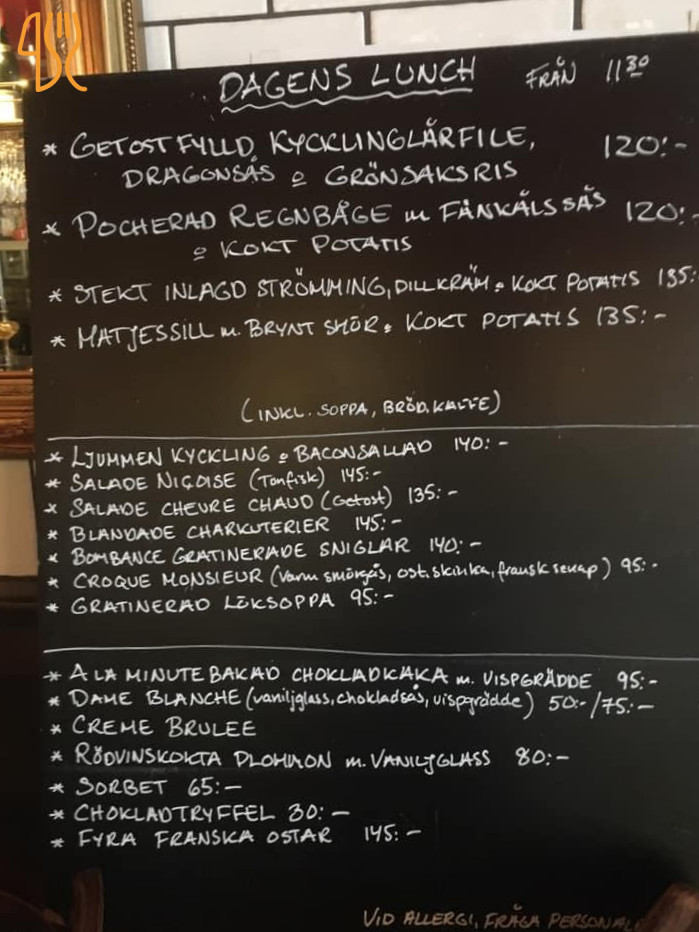 DAGENS LUNCH FRÅN 11 30
* GETOSTFYLLD KYCKLINGLÅRFILE, 120:-
DRAGONSÅS o GRÖNSAKSRIS
* POCHERAD REGNBÅGE m FÄNKÅLSSÅS 120:
o KOKT POTATIS
* STEKT INLAGD STRÖMMING, DILLKRÄM o KOKT POTATIS 135:
* MATJESSILL m. BRYNT SMÖR o KOKT POTATIS 135:-
(INKL. SOPPA, BRÖD, KAFFE)
* LJUMMEN KYCKLING o BACONSALLAD 140:-
* SALADE NIÇOISE (Tonfisk) 145:-
* SALADE CHEVRE CHAUD (Getost) 135:-
* BLANDADE CHARKUTERIER 145:-
* BOMBANCE GRATINERADE SNIGLAR 140:-
* CROQUE MONSIEUR (Varm smörgås, ost, skinka, fransk senap) 95:-
* GRATINERAD LÖKSOPPA 95:-
* A LA MINUTE BAKAD CHOKLADKAKA m. VISPGRÄDDE 95:-
* DAME BLANCHE (vaniljglass, chokladsås, vispgrädde) 50:-/75:-
* CREME BRULEE
* RÖDVINSKOKTA PLOMMON m. VANILJGLASS 80:-
* SORBET 65:-
* CHOKLADTRYFFEL 30:-
* FYRA FRANSKA OSTAR 145:-
VID ALLERGI, FRÅGA